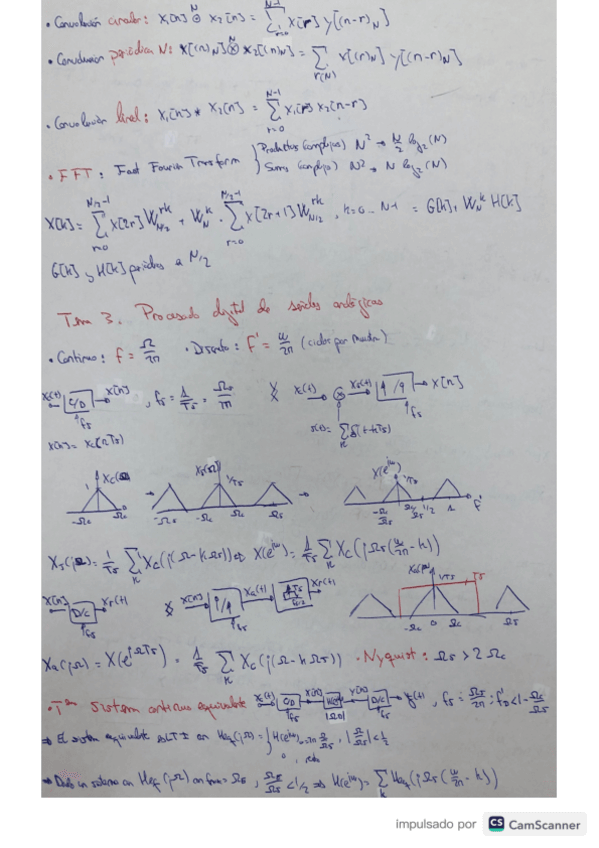 • Convolución circular: x₁[n] Ⓝ x₂[n] = Σ_{r=0}^{N-1} x[r] y[(n-r)_N]
• Convolución periódica N: x[(n)_N] Ⓝ x₂[(n)_N] = Σ_{r(N)} x[(r)_N] y[(n-r)_N]
• Convolución lineal: x₁[n] * x₂[n] = Σ_{r=0}^{N-1} x₁[r] x₂[n-r]
• FFT: Fast Fourier Transform { Productos (complejos) N² → N/2 log₂(N)
Sumas (complejas) N² → N log₂(N)
X[k] = Σ_{r=0}^{N/2-1} x[2r] W_{N/2}^{rk} + W_N^k · Σ_{r=0}^{N/2-1} x[2r+1] W_{N/2}^{rk}, k=0...N-1 = G[k] + W_N^k H[k]
G[k] y H[k] periódicas a N/2
Tema 3. Procesado digital de señales analógicas
• Continuo: f = Ω/2π • Discreto: f' = ω/2π (ciclos por muestra)
x_c(t) C/D x[n], f_s = 1/T_s = x_c(t) ⊗ x_s(t) x[n]
f_s f_s
x[n] = x_c(nT_s) s(t) = Σ_k δ(t-kT_s)
1 X_c(Ω) X_s(Ω) 1/T_s X(e^{jω}) 1/T_s
-Ω_c Ω_c -Ω_s -Ω_c Ω_c Ω_s -Ω_c/Ω_s Ω_c/Ω_s 1/2 1 f'
X_s(jΩ) = 1/T_s Σ_k X_c(j(Ω-kΩ_s)) X(e^{jω}) = 1/T_s Σ_k X_c(jΩ_s(ω/2π - k))
x[n] D/C x_r(t) x[n] x_s(t) x_r(t) 1/T_s T_s
f_s f_s -Ω_c 0 Ω_c Ω_s
X_s(jΩ) = X(e^{jΩT_s}) = 1/T_s Σ_k X_c(j(Ω-kΩ_s)) • Nyquist: Ω_s > 2Ω_c
Sistema continuo equivalente x_c(t) C/D x[n] D/C y(t), f_s = Ω_s/2π
⇒ El sistema equivalente es LTI con H_eq(jΩ) = { H(e^{jω}), |Ω/Ω_s| < 1/2
0, resto
⇒ Dado un sistema con H_eq(jΩ) < 1/2 ⇒ H(e^{jω}) = Σ_k H_eq(jΩ_s(ω/2π - k))
impulsado por CS CamScanner